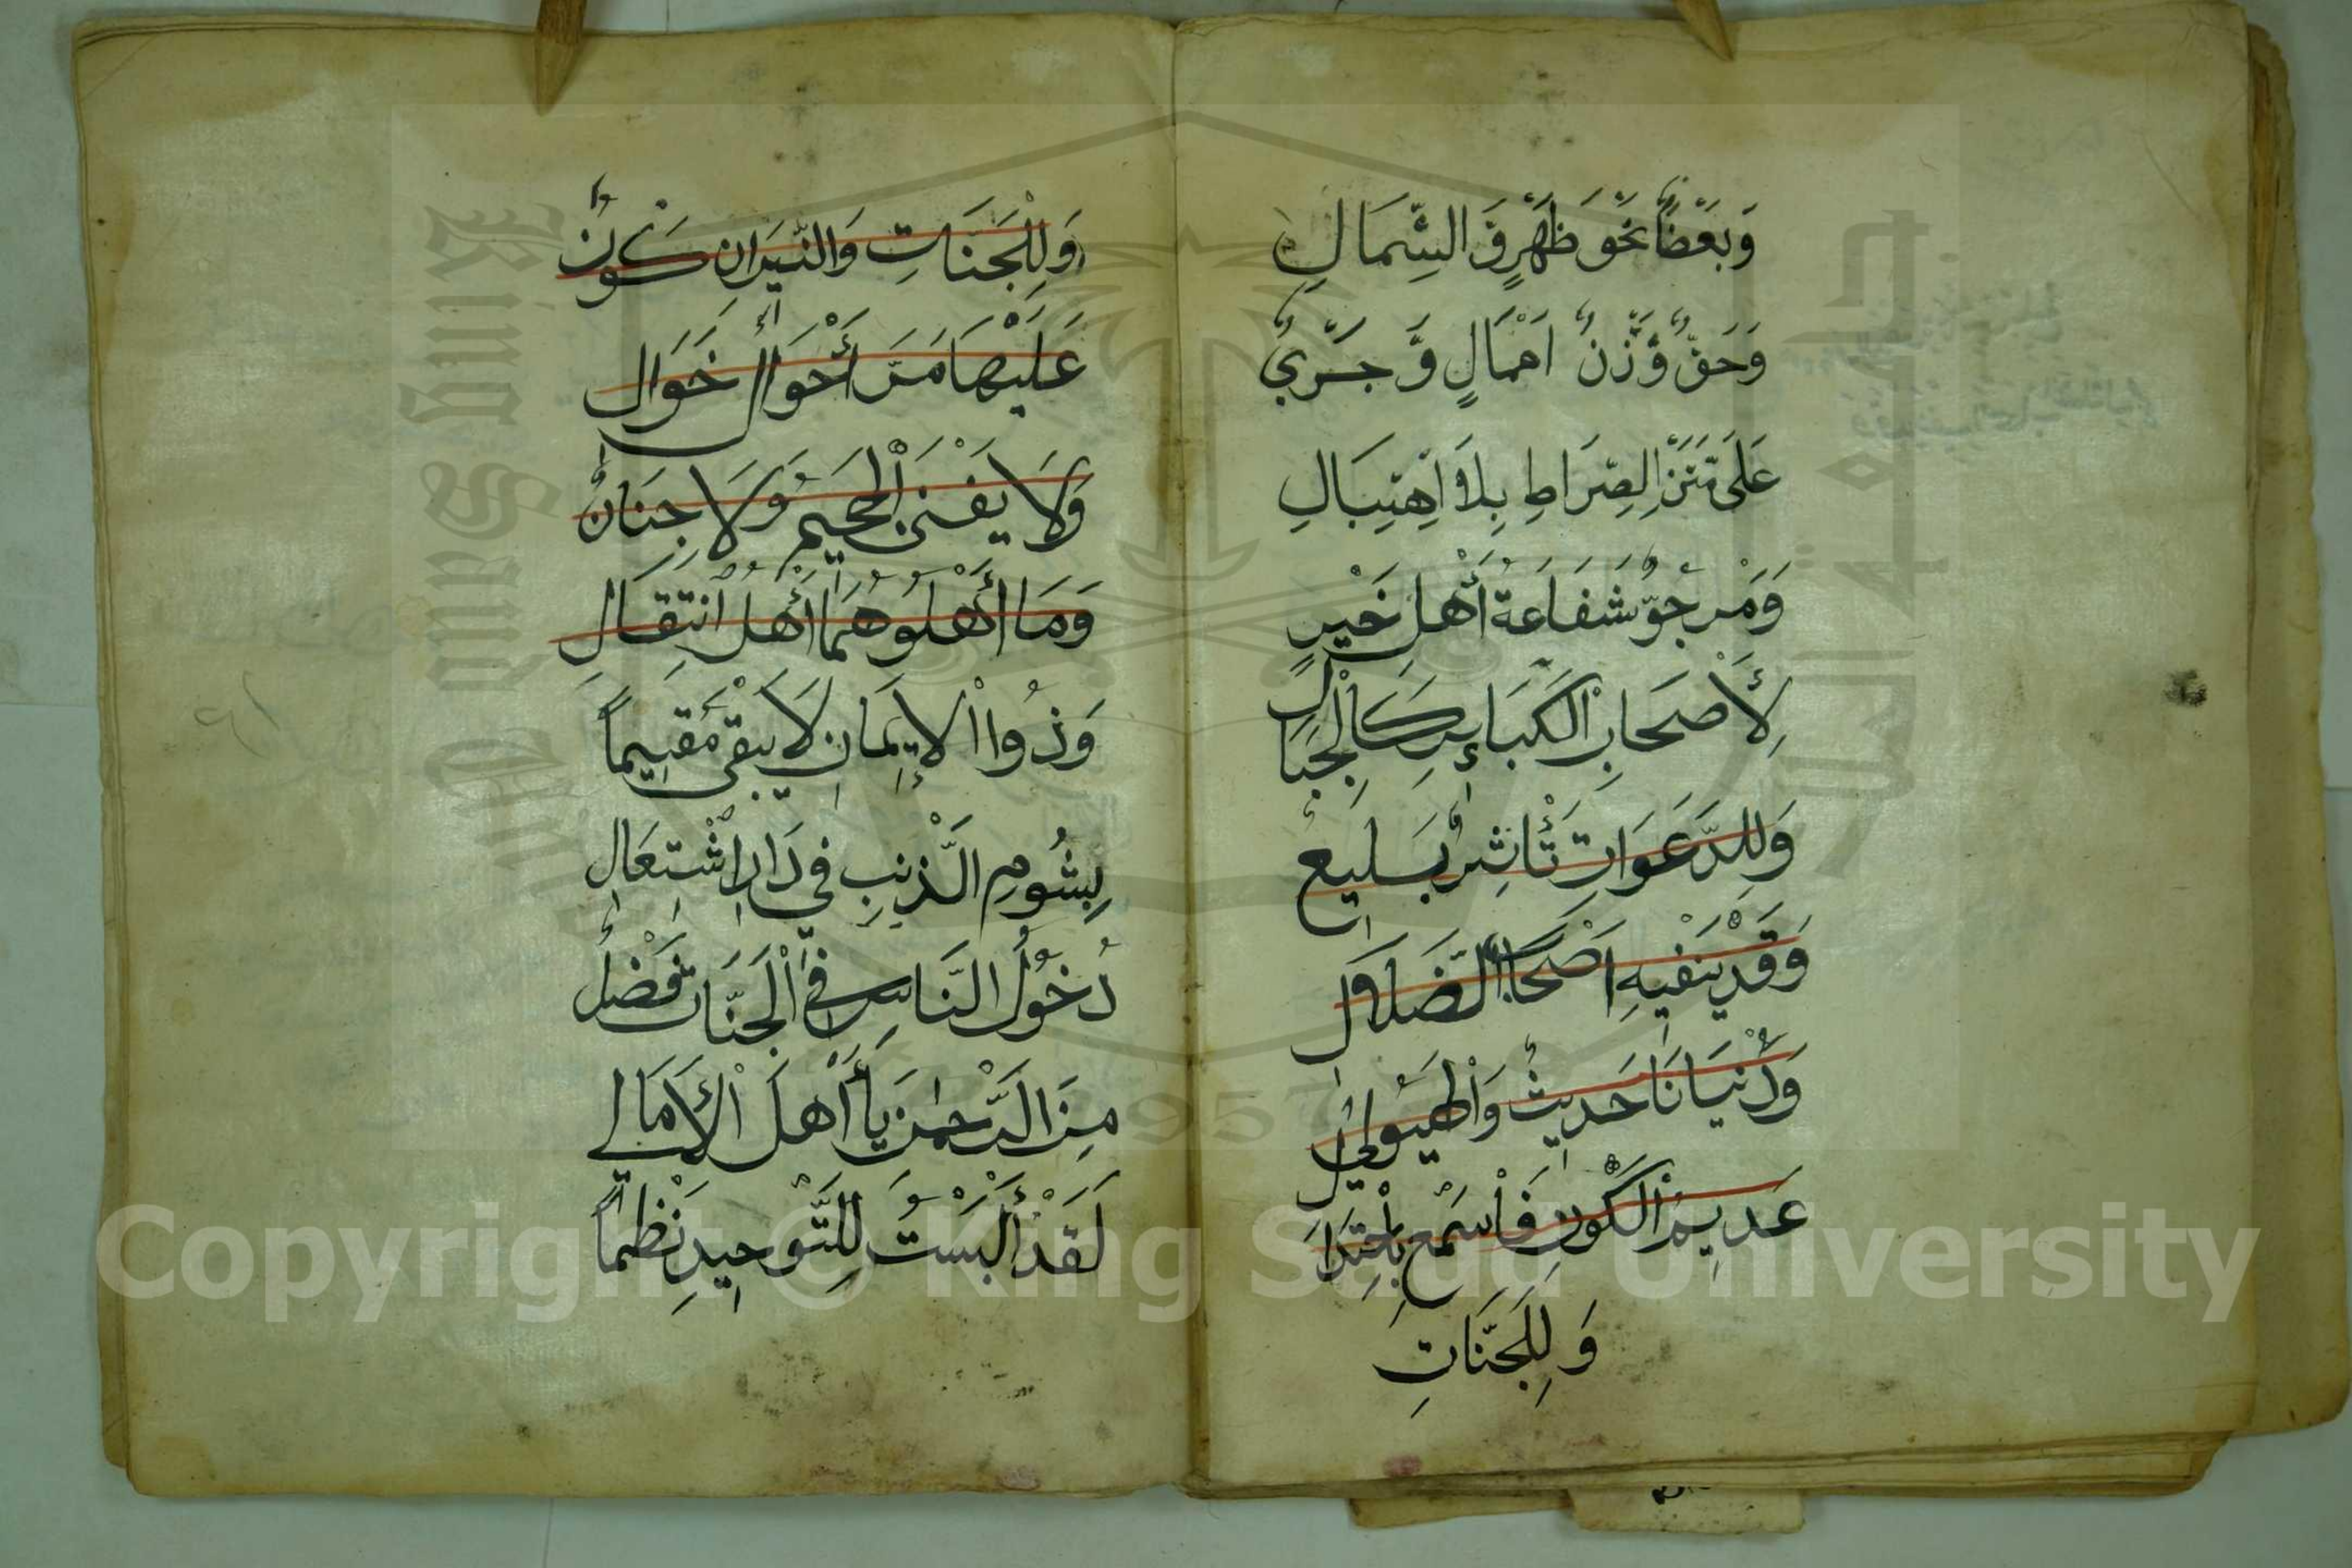 وَبَعْضًا نَحْوَ ظَهْرٍ وَالشِّمَالِ
وَحَقٌّ وَزْنُ اَعْمَالٍ وَّجَرْيٌ
عَلَى مَتْنِ الصِّرَاطِ بِلاَ اِهْتِبَالِ
وَمَرْجُوٌّ شَفَاعَةُ أَهْلِ خَيْرٍ
لِأَصْحَابِ الْكَبَائِرِ كَالْجِبَالِ
وَلِلدَّعَوَاتِ تَأْثِيرٌ بَلِيغٌ
وَقَدْ يَنْفِيهِ اَصْحَابُ الضَّلاَلِ
وَدُنْيَانَا حَدِيثٌ وَالْهَيُولَى
عَدِيمُ الْكَوْنِ فَاسْمَعْ بِاجْتِدَالِ
وَلِلْجَنَّاتِ
وَلِلْجَنَّاتِ وَالنِّيرَانِ كَوْنٌ
عَلَيْهَا مَرَّ أَحْوَالٌ خَوَالِ
وَلاَ يَفْنَى الْجَحِيمُ وَلاَ جِنَانٌ
وَمَا أَهْلُوهُمَا أَهْلُ انْتِقَالِ
وَذُوا الْإِيمَانِ لاَ يَبْقَى مُقِيمًا
بِشُومِ الذَّنْبِ فِي دَارِ اشْتِعَالِ
دُخُولُ النَّاسِ فِي الْجَنَّاتِ فَضْلٌ
مِنَ الرَّحْمٰنِ يَا أَهْلَ الْأَمَالِي
لَقَدْ أَلْبَسْتُ لِلتَّوْحِيدِ نَظْمًا
Copyright © King Saud University
King Saud University
1957